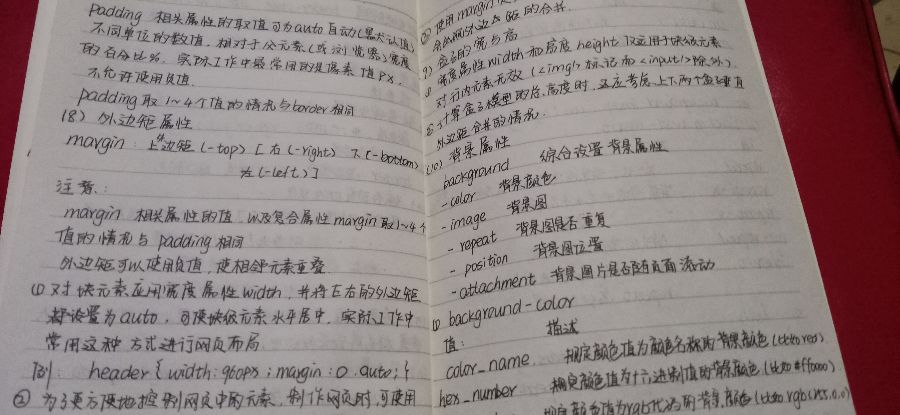 padding 相关属性的取值可为auto自动(默认值)
不同单位的数值,相对于父元素(或浏览器)宽度
的百分比%,实际工作中最常用的是像素值px,
不允许使用负值
padding取1~4个值的情况与border相同
(8) 外边距属性
margin: 上外边距(-top) [右(-right) 下(-bottom)
左(-left)]
注意:
margin 相关属性的值,以及复合属性margin取1~4个
值的情况与padding相同
外边距可以使用负值,使相邻元素重叠
(1) 对块元素应用宽度属性width,并将左右的外边距
都设置为auto,可使块级元素水平居中,实际工作中
常用这种方式进行网页布局
例: header{width:960px;margin:0 auto;}
② 为了更方便地控制网页中的元素,制作网页时,可使用
② 使用margin
盒子的宽与高
宽度属性width和高度height仅适用于块级元素
对行内元素无效(<img/>标记和<input/>除外)
计算盒子模型的总高度时,还应考虑上下两个盒子垂直
外边距合并的情况.
(10) 背景属性
background 综合设置背景属性
-color 背景颜色
-image 背景图
-repeat 背景图是否重复
-position 背景图位置
-attachment 背景图片是否随页面滚动
background-color
值: 描述
color_name 规定颜色值为颜色名称的背景颜色(比如red)
hex_number 规定颜色值为十六进制值的背景颜色(比如#ff0000)
规定颜色值为rgb代码的背景颜色(比如rgb(255,0,0)